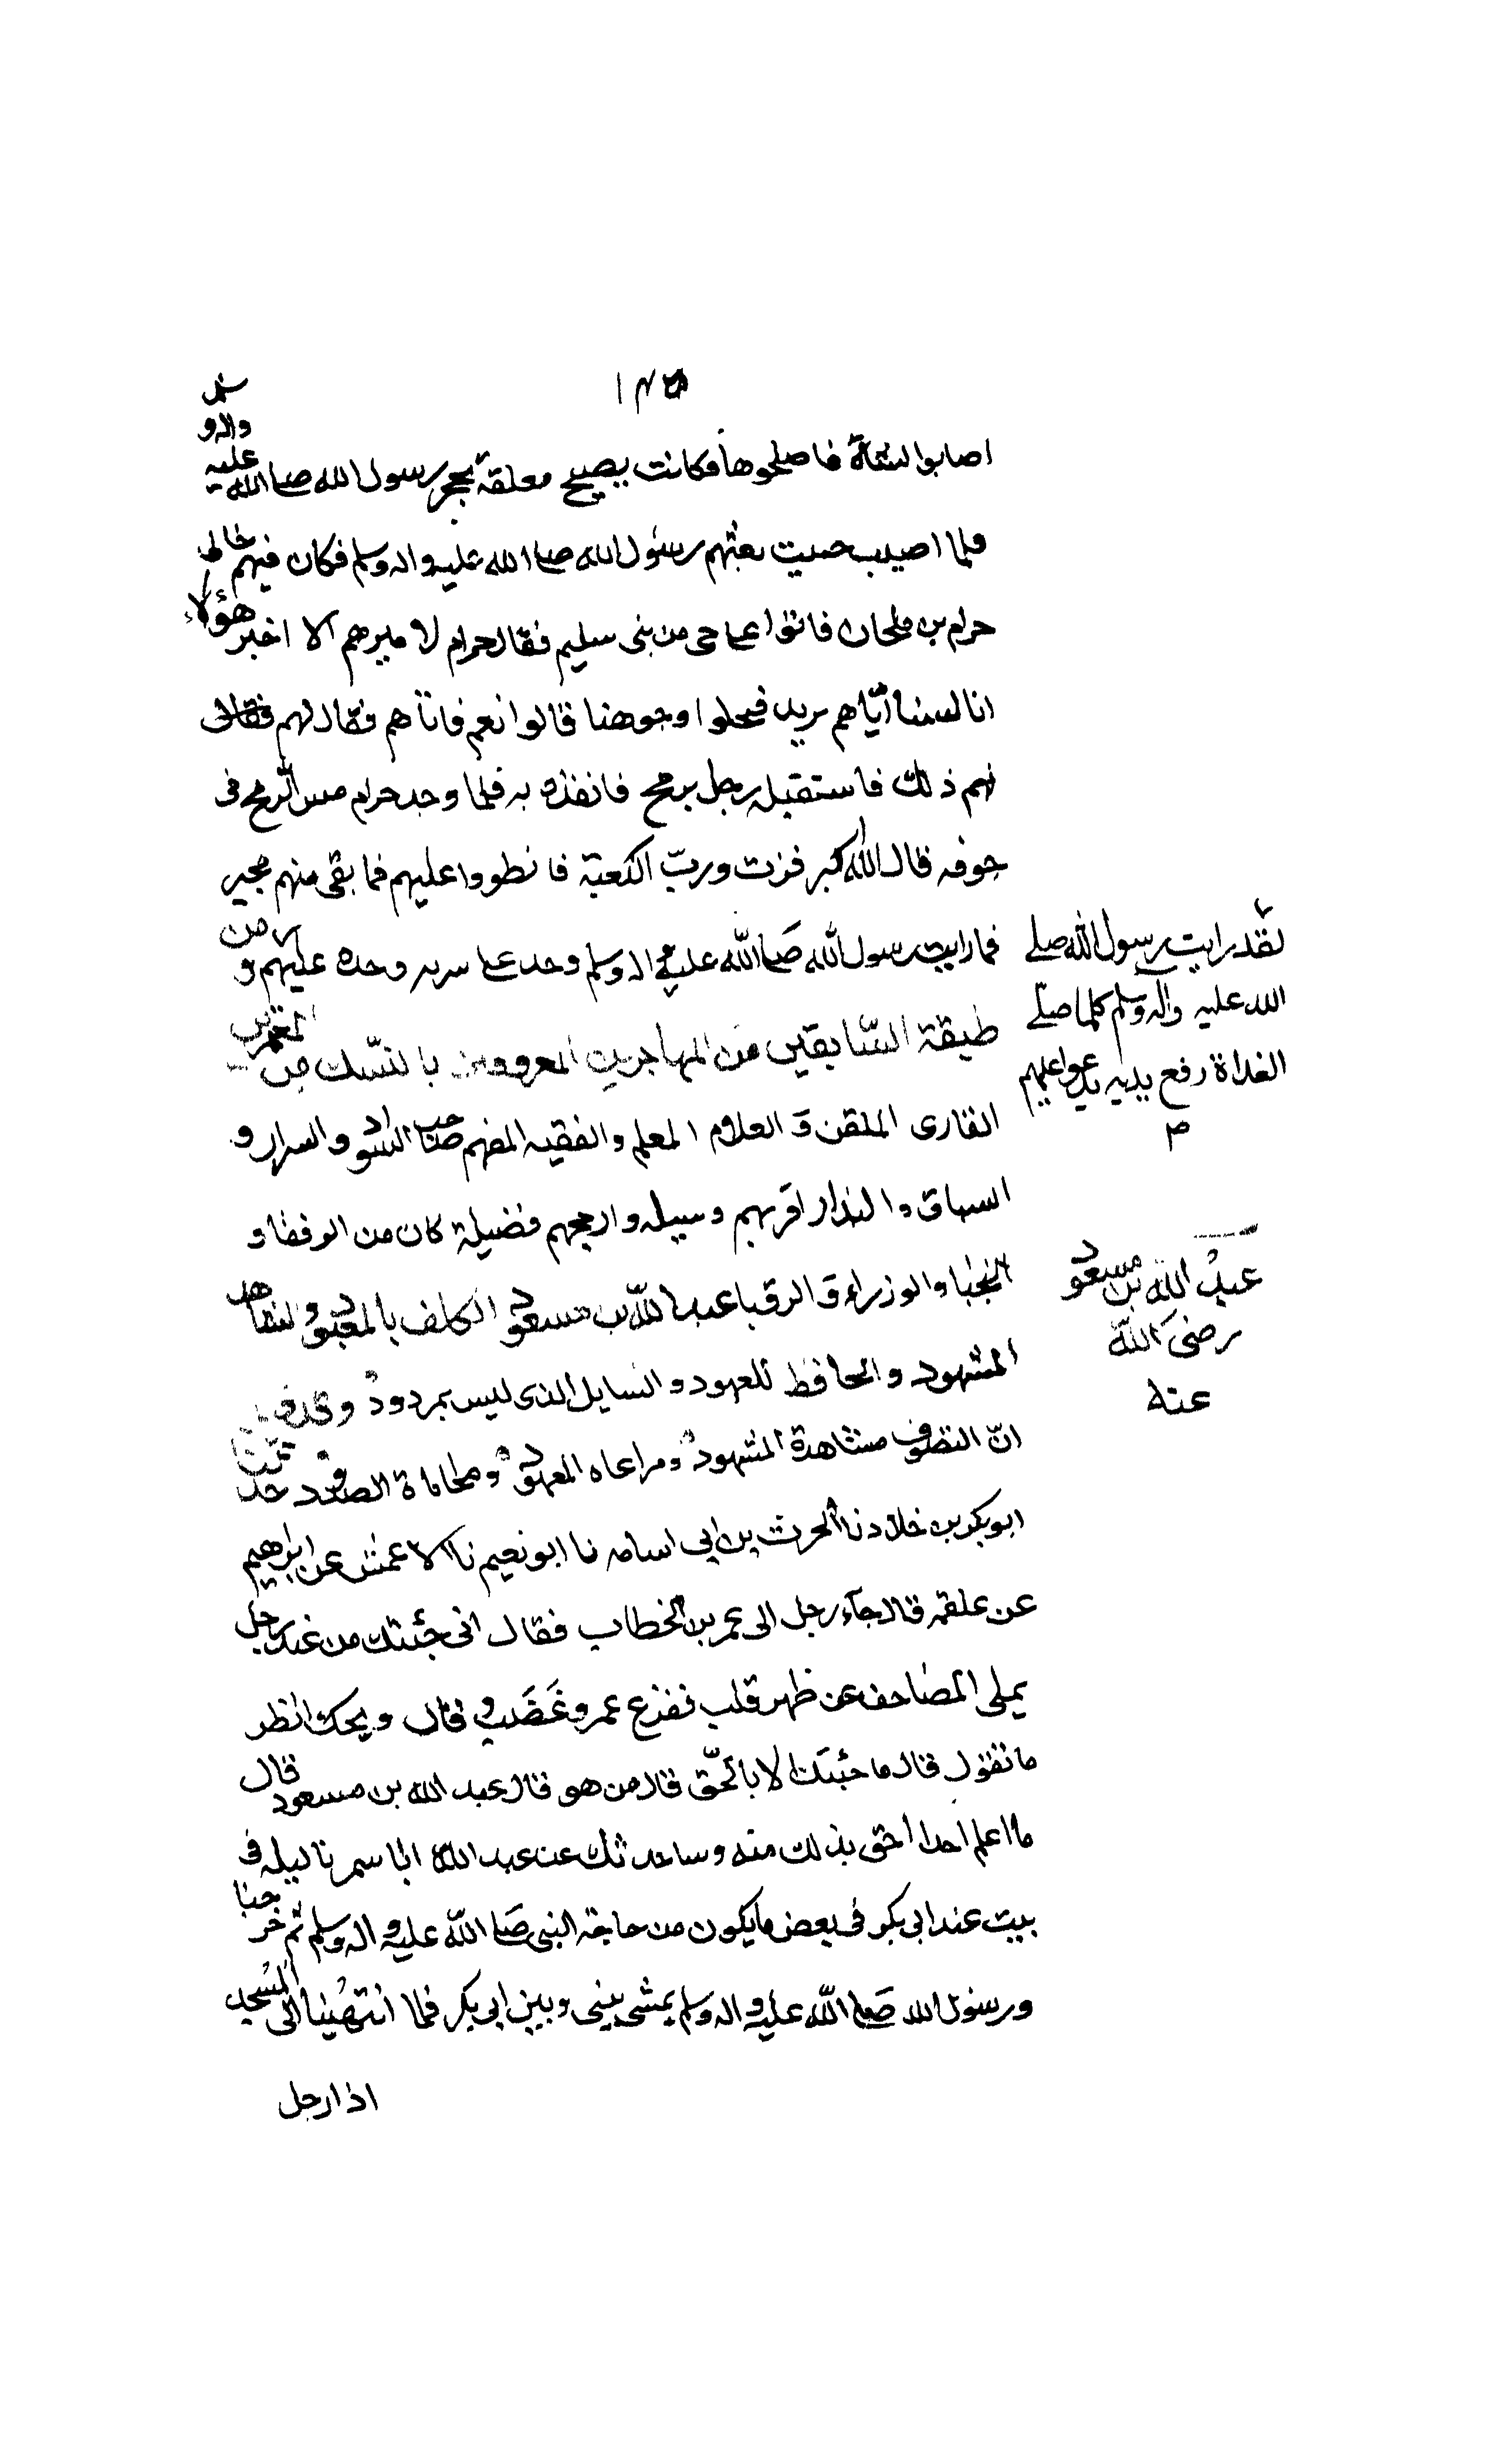 ١٣٥
اصابوا الشاة فاصلحوها فكانت يصبح معلقة بحجر رسول الله صلى الله عليه واله وسلم
فلما اصيب خبيب بعثهم رسول الله صلى الله عليه واله وسلم فكان فيهم خالى
حرام بن ملحان فاتوا على حى من بنى سليم فقال حرام لاميرهم الا اخبر هؤلاء
انا لسنا اياهم نريد فيخلوا وجوهنا قالوا نعم فاتاهم فقال لهم فقال
لهم ذلك فاستقبله رجل برمح فانفذه به فلما وجد حرام مس الرمح فى
جوفه قال الله اكبر فزت ورب الكعبة فانطووا عليهم فما بقى منهم مخبر
فما رايت رسول الله صلى الله عليه واله وسلم وجد على سرية وجده عليهم ومن
لقد رايت رسول الله صلى
الله عليه واله وسلم كلما صلى
الغداة رفع يديه يدعوا عليهم
طبقة السابقين من المهاجرين المعروفين بالنسك من المعمرين
القارى الملقن و العلام المعلم والفقيه المفهم صاحب السواد والسرار و
السباق والبدار اقربهم وسيلة وارجحهم فضيلة كان من الرفقا و
النجبا والوزراء و الرقبا عبد الله بن مسعود الكلف بالمعبود والشاهد
عبد الله بن مسعود
رضى الله
عنه
المشهود والحافظ للعهود والسايل الذى ليس بمردود وقد قيل
ان التصوف مشاهدة المشهود ومراعاه العهود ومحاماة الصدود حدثنا
ابو بكر بن خلاد نا الحرث بن ابى اسامه نا ابو نعيم نا الاعمش عن ابرهيم
عن علقمه قال جآء رجل الى عمر بن الخطاب فقال انى جئتك من عند رجل
يملى المصاحف عن ظهر قلب ففزع عمر وغضب وقال ويحك انظر
ما تقول قال ما جئتك الا بالحق قال من هو قال عبد الله بن مسعود قال
ما اعلم احدا احق بذلك منه وساحدثك عن عبد الله انا سمرنا ليلة فى
بيت عند ابى بكر فى بعض ما يكون من حاجة النبى صلى الله عليه واله وسلم ثم خرجنا
ورسول الله صلى الله عليه واله وسلم يمشى بينى وبين ابى بكر فلما انتهينا الى المسجد
اذا رجل